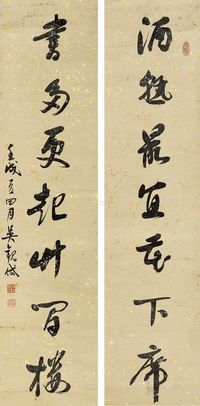 酒熟最宜花下席
書多更起竹間樓
壬戌夏四月吳觀岱